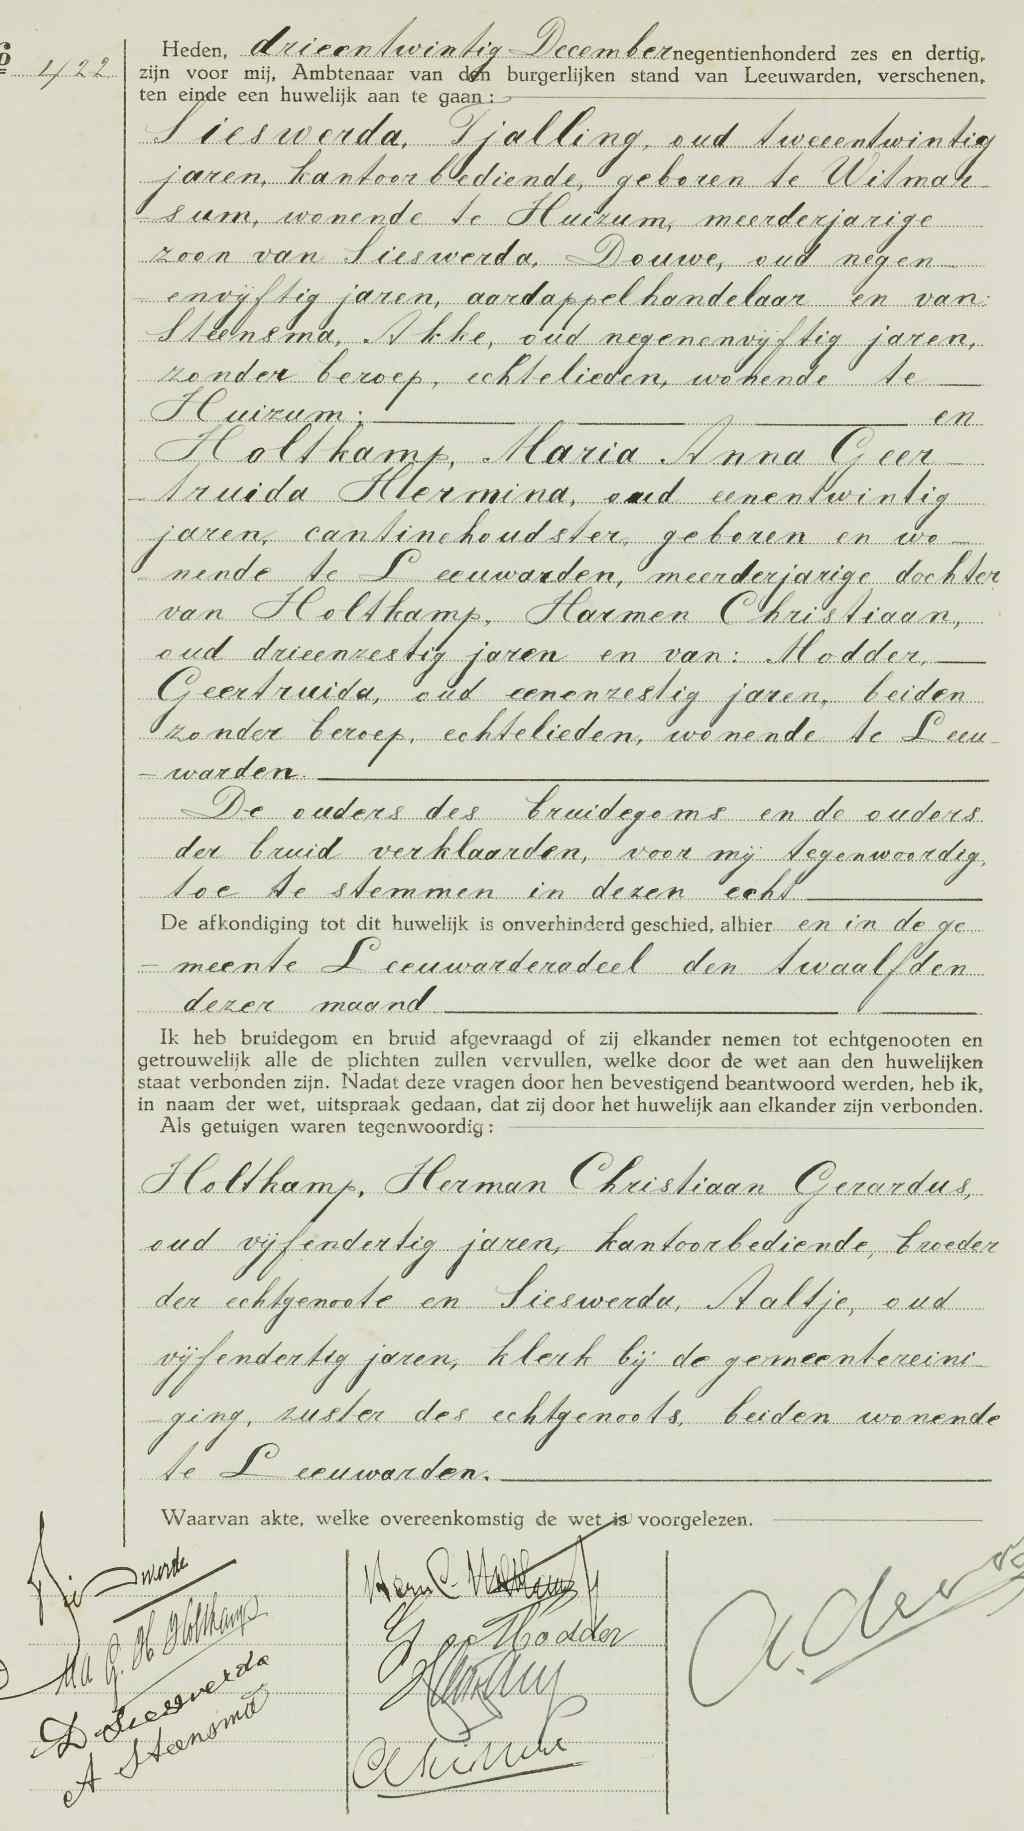 422
Heden, drieentwintig December negentienhonderd zes en dertig,
zijn voor mij, Ambtenaar van den burgerlijken stand van Leeuwarden, verschenen,
ten einde een huwelijk aan te gaan:
Sieswerda, Tjalling, oud tweeentwintig
jaren, kantoorbediende, geboren te Witmar-
sum, wonende te Huizum, meerderjarige
zoon van Sieswerda, Douwe, oud negen-
envijftig jaren, aardappelhandelaar en van:
Steensma, Akke, oud negenenvijftig jaren,
zonder beroep, echtelieden, wonende te
Huizum; en
Holtkamp, Maria Anna Geer-
truida Hermina, oud eenentwintig
jaren, cantinehoudster, geboren en wo-
nende te Leeuwarden, meerderjarige dochter
van Holtkamp, Harmen Christiaan,
oud drieenzestig jaren en van: Modder,
Geertruida, oud eenenzestig jaren, beiden
zonder beroep, echtelieden, wonende te Leeu-
warden.
De ouders des bruidegoms en de ouders
der bruid verklaarden, voor mij tegenwoordig,
toe te stemmen in dezen echt
De afkondiging tot dit huwelijk is onverhinderd geschied, alhier en in de ge
meente Leeuwarderadeel den twaalfden
dezer maand
Ik heb bruidegom en bruid afgevraagd of zij elkander nemen tot echtgenooten en
getrouwelijk alle de plichten zullen vervullen, welke door de wet aan den huwelijken
staat verbonden zijn. Nadat deze vragen door hen bevestigend beantwoord werden, heb ik,
in naam der wet, uitspraak gedaan, dat zij door het huwelijk aan elkander zijn verbonden.
Als getuigen waren tegenwoordig:
Holtkamp, Herman Christiaan Gerardus,
oud vijfendertig jaren, kantoorbediende, broeder
der echtgenoote en Sieswerda, Aaltje, oud
vijfendertig jaren, klerk bij de gemeentereini-
ging, zuster des echtgenoots, beiden wonende
te Leeuwarden.
Waarvan akte, welke overeenkomstig de wet is voorgelezen.
Sieswerda
Ma G. H Holtkamp
D Sieswerda
A Steensma
Herm C. Holtkamp
G Modder